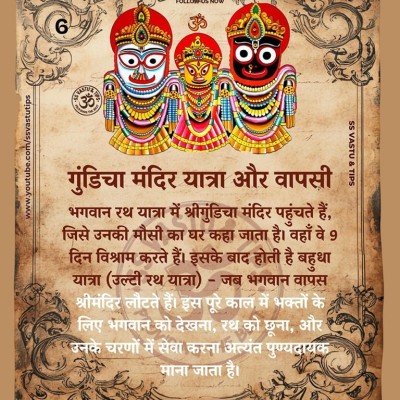 FOLLOW US NOW
6
ॐ
SS VASTU & TIPS
www.youtube.com/ssvastutips
गुंडिचा मंदिर यात्रा और वापसी
भगवान रथ यात्रा में श्रीगुंडिचा मंदिर पहुंचते हैं,
जिसे उनकी मौसी का घर कहा जाता है। वहाँ वे 9
दिन विश्राम करते हैं। इसके बाद होती है बहुधा
यात्रा (उल्टी रथ यात्रा) – जब भगवान वापस
श्रीमंदिर लौटते हैं। इस पूरे काल में भक्तों के
लिए भगवान को देखना, रथ को छूना, और
उनके चरणों में सेवा करना अत्यंत पुण्यदायक
माना जाता है।